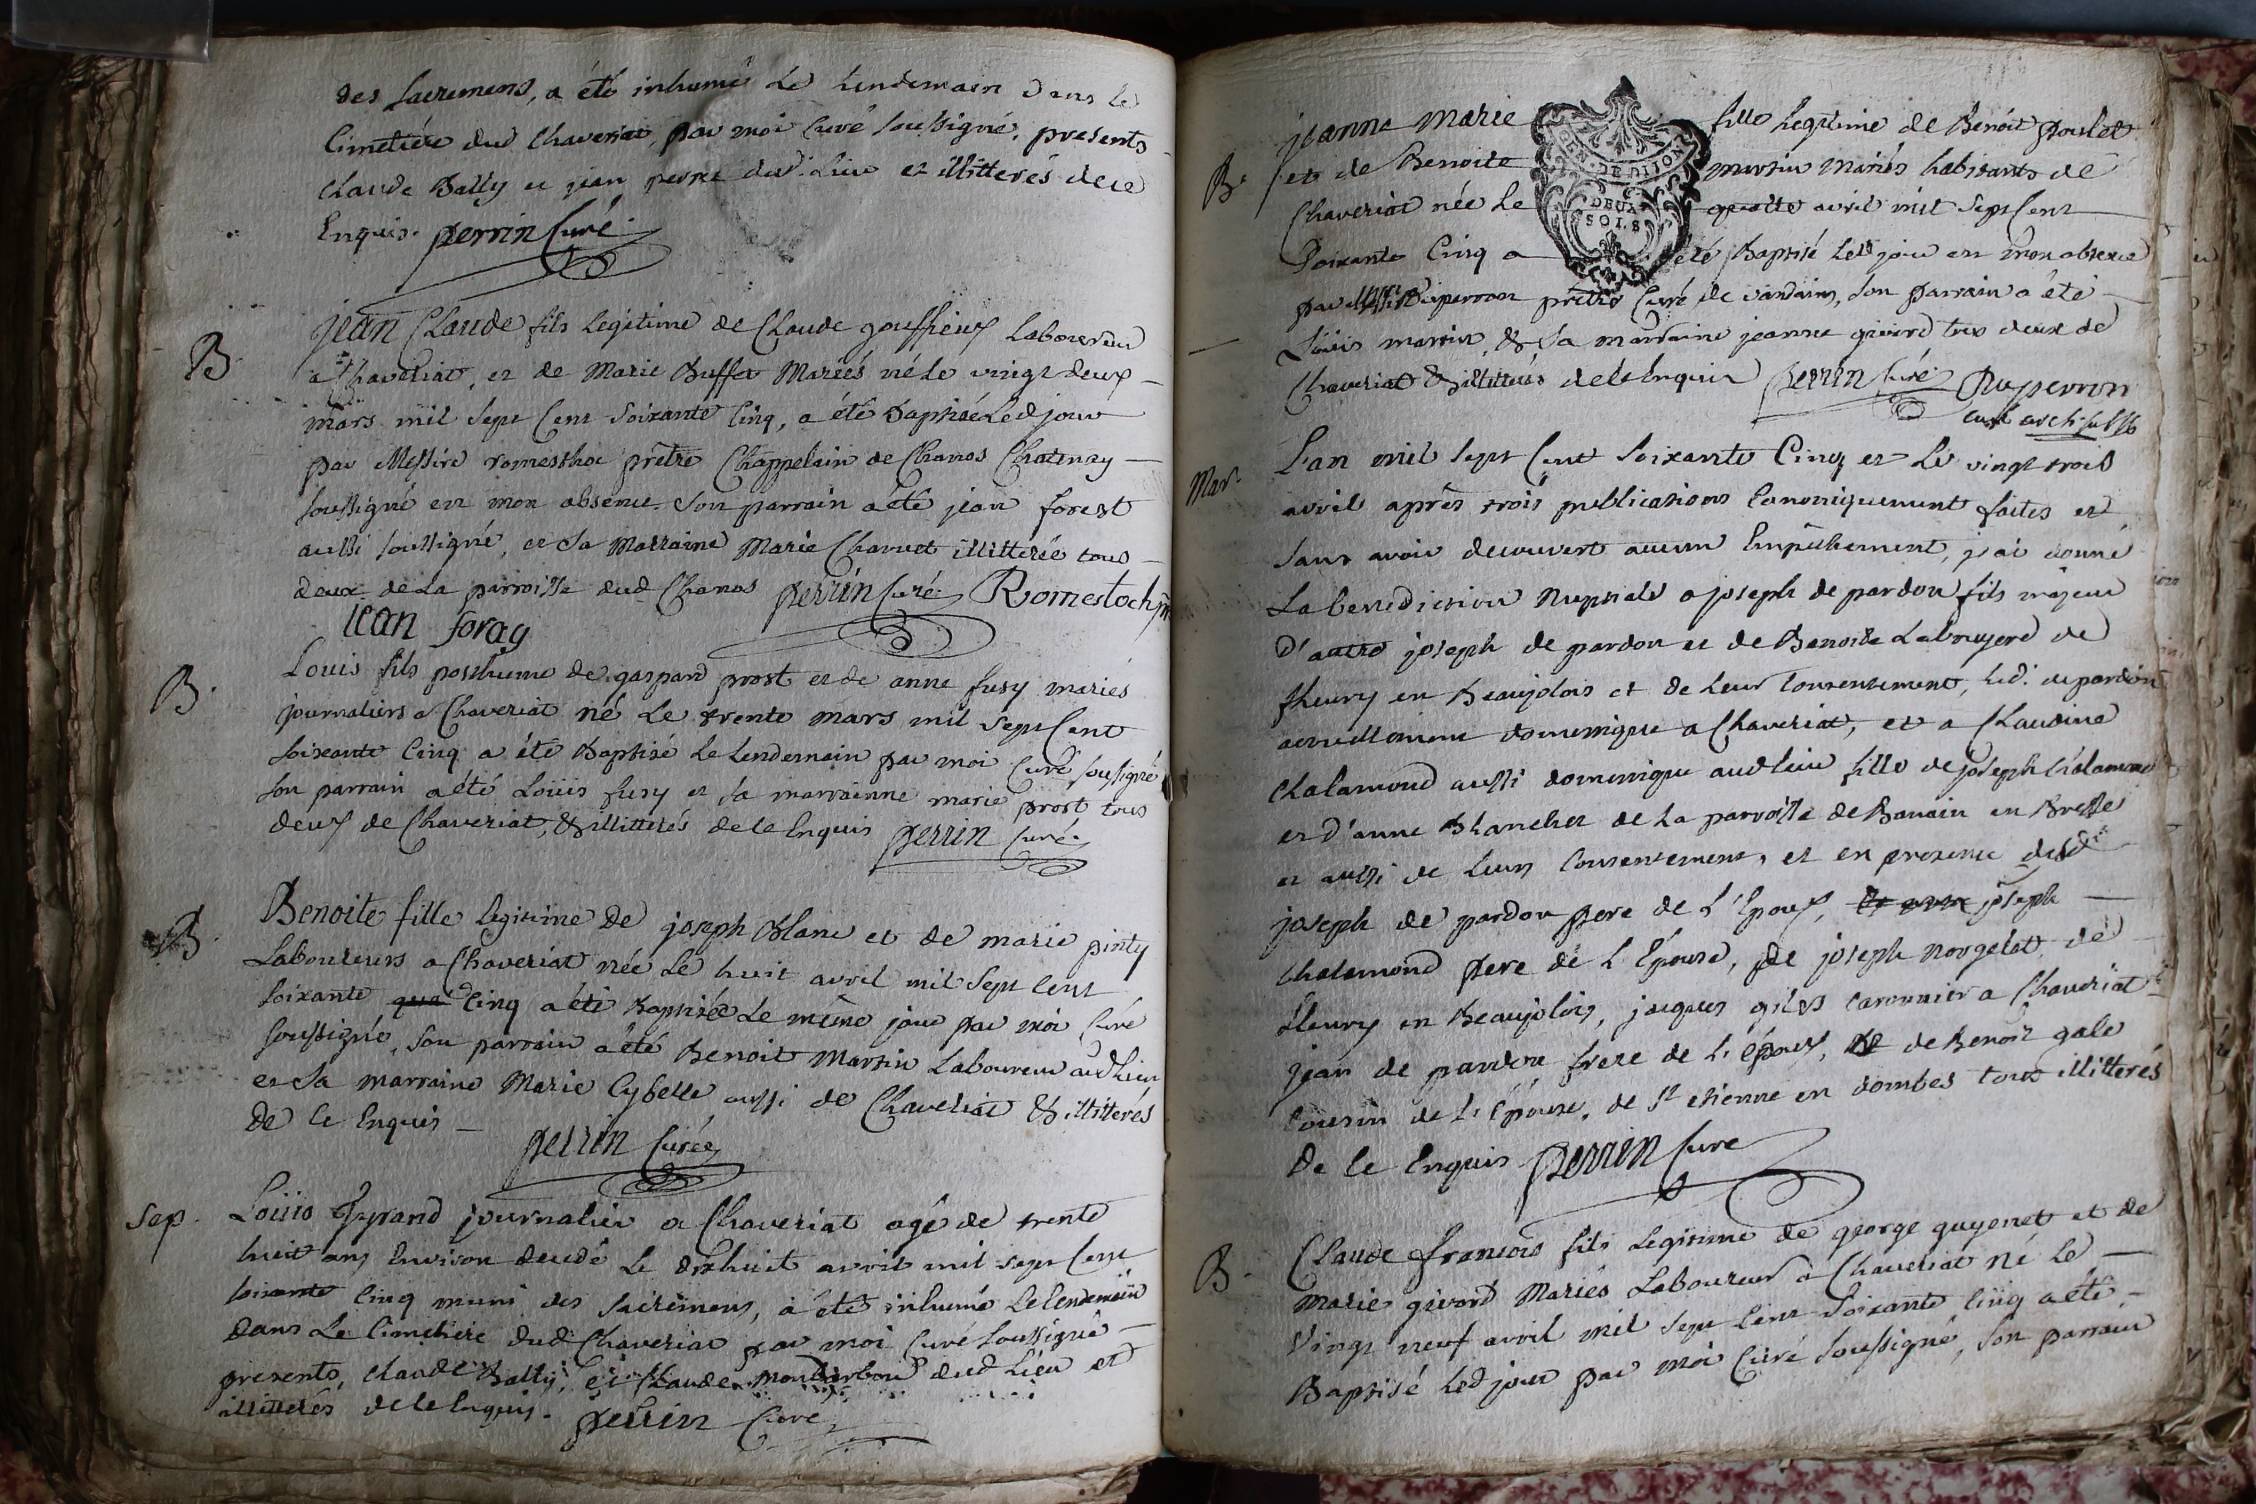 des sacremens, a été inhumé le lendemain dans le
Cimetiére dud Chaveriat, par moi Curé soussigné, presents
Claude Bally et jean perret dud. Lieu et illitterés de ce
Enquis. perrin Curé
B. jean Claude fils legitime de Claude gouffieux Laboureur
a Chaveriat, et de Marie Buffet Mariés né le vingt deux
mars mil sept Cent soixante Cinq, a été Baptisé Led jour
par Messire romesthoc prêtre Chappelain de Chanos Chatenay
soussigné en mon absence. Son parrain a été jean forest
aussi soussigné, et sa Marraine Marie Charvet illitterée tous
deux de La parroisse dud Chanos perrin Curé Romestoch
jean foray
B. Louis fils posthume de gaspard prost et de anne fusy mariés
journaliers a Chaveriat né Le trente mars mil sept Cent
soixante Cinq a été Baptisé le Lendemain par moi Curé soussigné
son parrain a été Loüis fusy et sa marrainne marie prost tous
deux de Chaveriat, & illitterés de ce Enquis perrin Curé.
B. Benoite fille legitime de joseph Blanc et de marie pinty
Laboureurs a Chaveriat née Le huit avril mil Sept Cent
soixante Cinq a été Baptisée Le même jour par moi Curé
soussigné, son parrain a été Benoit Martin Laboureur aud Lieu
et sa marraine Marie Cybelle aussi de Chaveriat & illitterés
de ce Enquis perrin Curé
Sep. Loüis journalier a Chaveriat agé de trente
huit ans Environ decedé Le dixhuit avril mil sept Cent
soixante Cinq muni des sacremens, a été inhumé Le lendemain
dans Le Cimetiere dud Chaveriat par moi Curé soussigné
presents, Claude Bally, et Claude Montarbon dud Lieu et
illitterés de ce Enquis. perrin Curé
B. jeanne marie fille legitime de Benoit poulet
et de Benoite martin mariés habitants de
Chaveriat née Le quatte avril mil sept Cent
soixante Cinq a été Baptisé Led jour en mon absence
par Messire Duperron prêtre Curé de vandains, son parrain a été
Loüis martin, & sa marraine jeanne givord tous deux de
Chaveriat & illitterés de ce Enquis perrin Curé Duperron
curé
GEN. DE DIJON
DEUX
SOLS
Mar. L'an mil sept Cent soixante Cinq et Le vingt trois
avril après trois publications Canoniquement faites et
sans avoir decouvert aucun Empêchement, j'ai donné
La benediction Nuptiale a joseph de pardon fils majeur
d'autre joseph de pardon et de Benoite Labruyere de
fleury en Beaujolois et de leur Consentement, led. de pardon
actuellement domestique a Chaveriat, et a Claudine
Chalamond aussi domestique aud Lieu fille de joseph Chalamond
et d'anne Blanchet de La parroisse de Banain en Bresse
et aussi de Leurs Consentement, et en presence desd
joseph de pardon pere de L'Epoux, joseph
Chalamond pere de L'Epouse, de joseph norgelet de
fleury en Beaujolois, jacques giles a Chaveriat
jean de pardon frere de L'époux, de Benoit gale
Cousin de L'Epouse, de St etienne en dombes tous illitterés
de ce Enquis perrin Curé
B. Claude francois fils legitime de george guyenet et de
marie givord Mariés Laboureur a Chaveriat né Le
Vingt neuf avril mil sept Cent soixante Cinq a été
Baptisé Led jour par moi Curé soussigné, son parrain